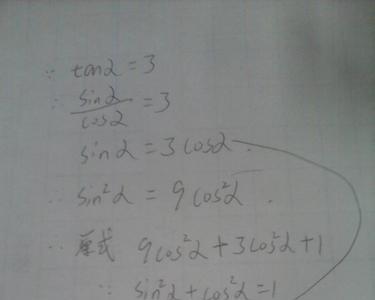 ∵ tanα = 3
∴ sinα/cosα = 3
sinα = 3cosα.
∴ sin²α = 9cos²α.
∴ 原式 9cos²α + 3cos²α + 1
∵ sin²α + cos²α = 1